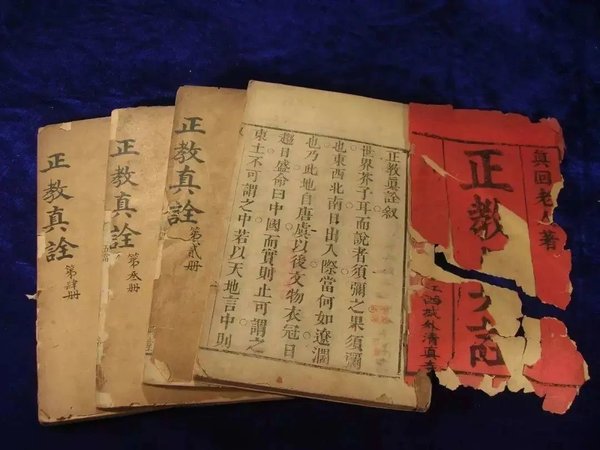 真回老人著
正教
城外清真
正教真詮叙
世界芥子耳而說者須彌之果須彌
也東西北南日出入際當何如遼濶
也乃此地自唐虞以後文物衣冠日
趨日盛命曰中國而實則止可謂之
東土不可謂之中若以天地言中則
正教真詮
第貳册
正教真詮
第叁册
正教真詮
第肆册